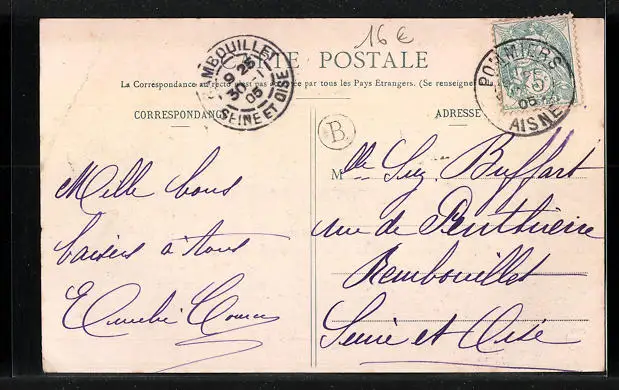 16 €
CARTE POSTALE
RAMBOUILLET
9 25
30 -1
05
SEINE ET OISE
POMMIERS
05
AISNE
5
La Correspondance au recto n'est pas acceptée par tous les Pays Etrangers. (Se renseigner
CORRESPONDANCE
ADRESSE
B
Mille bons
baisers à tous
Mlle Suz Buffart
rue de Penthièvre
Rambouillet
Seine et Oise